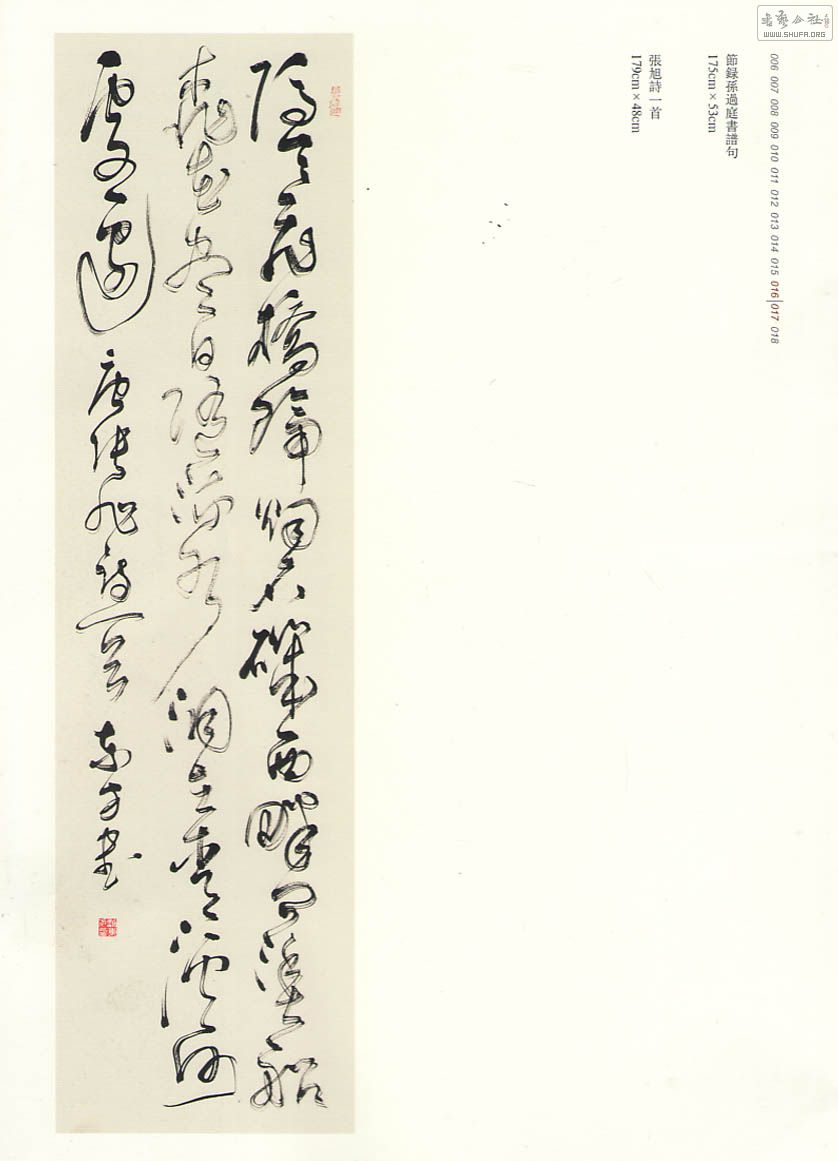 006 007 008 009 010 011 012 013 014 015 016 017 018
節録孫過庭書譜句
175cm×53cm
張旭詩一首
179cm×48cm
隱々飛橋隔烟石磯西畔問漁船
桃花盡日隨流水洞在青溪何
處邊 唐張旭詩一首 東方書
WWW.SHUFA.ORG